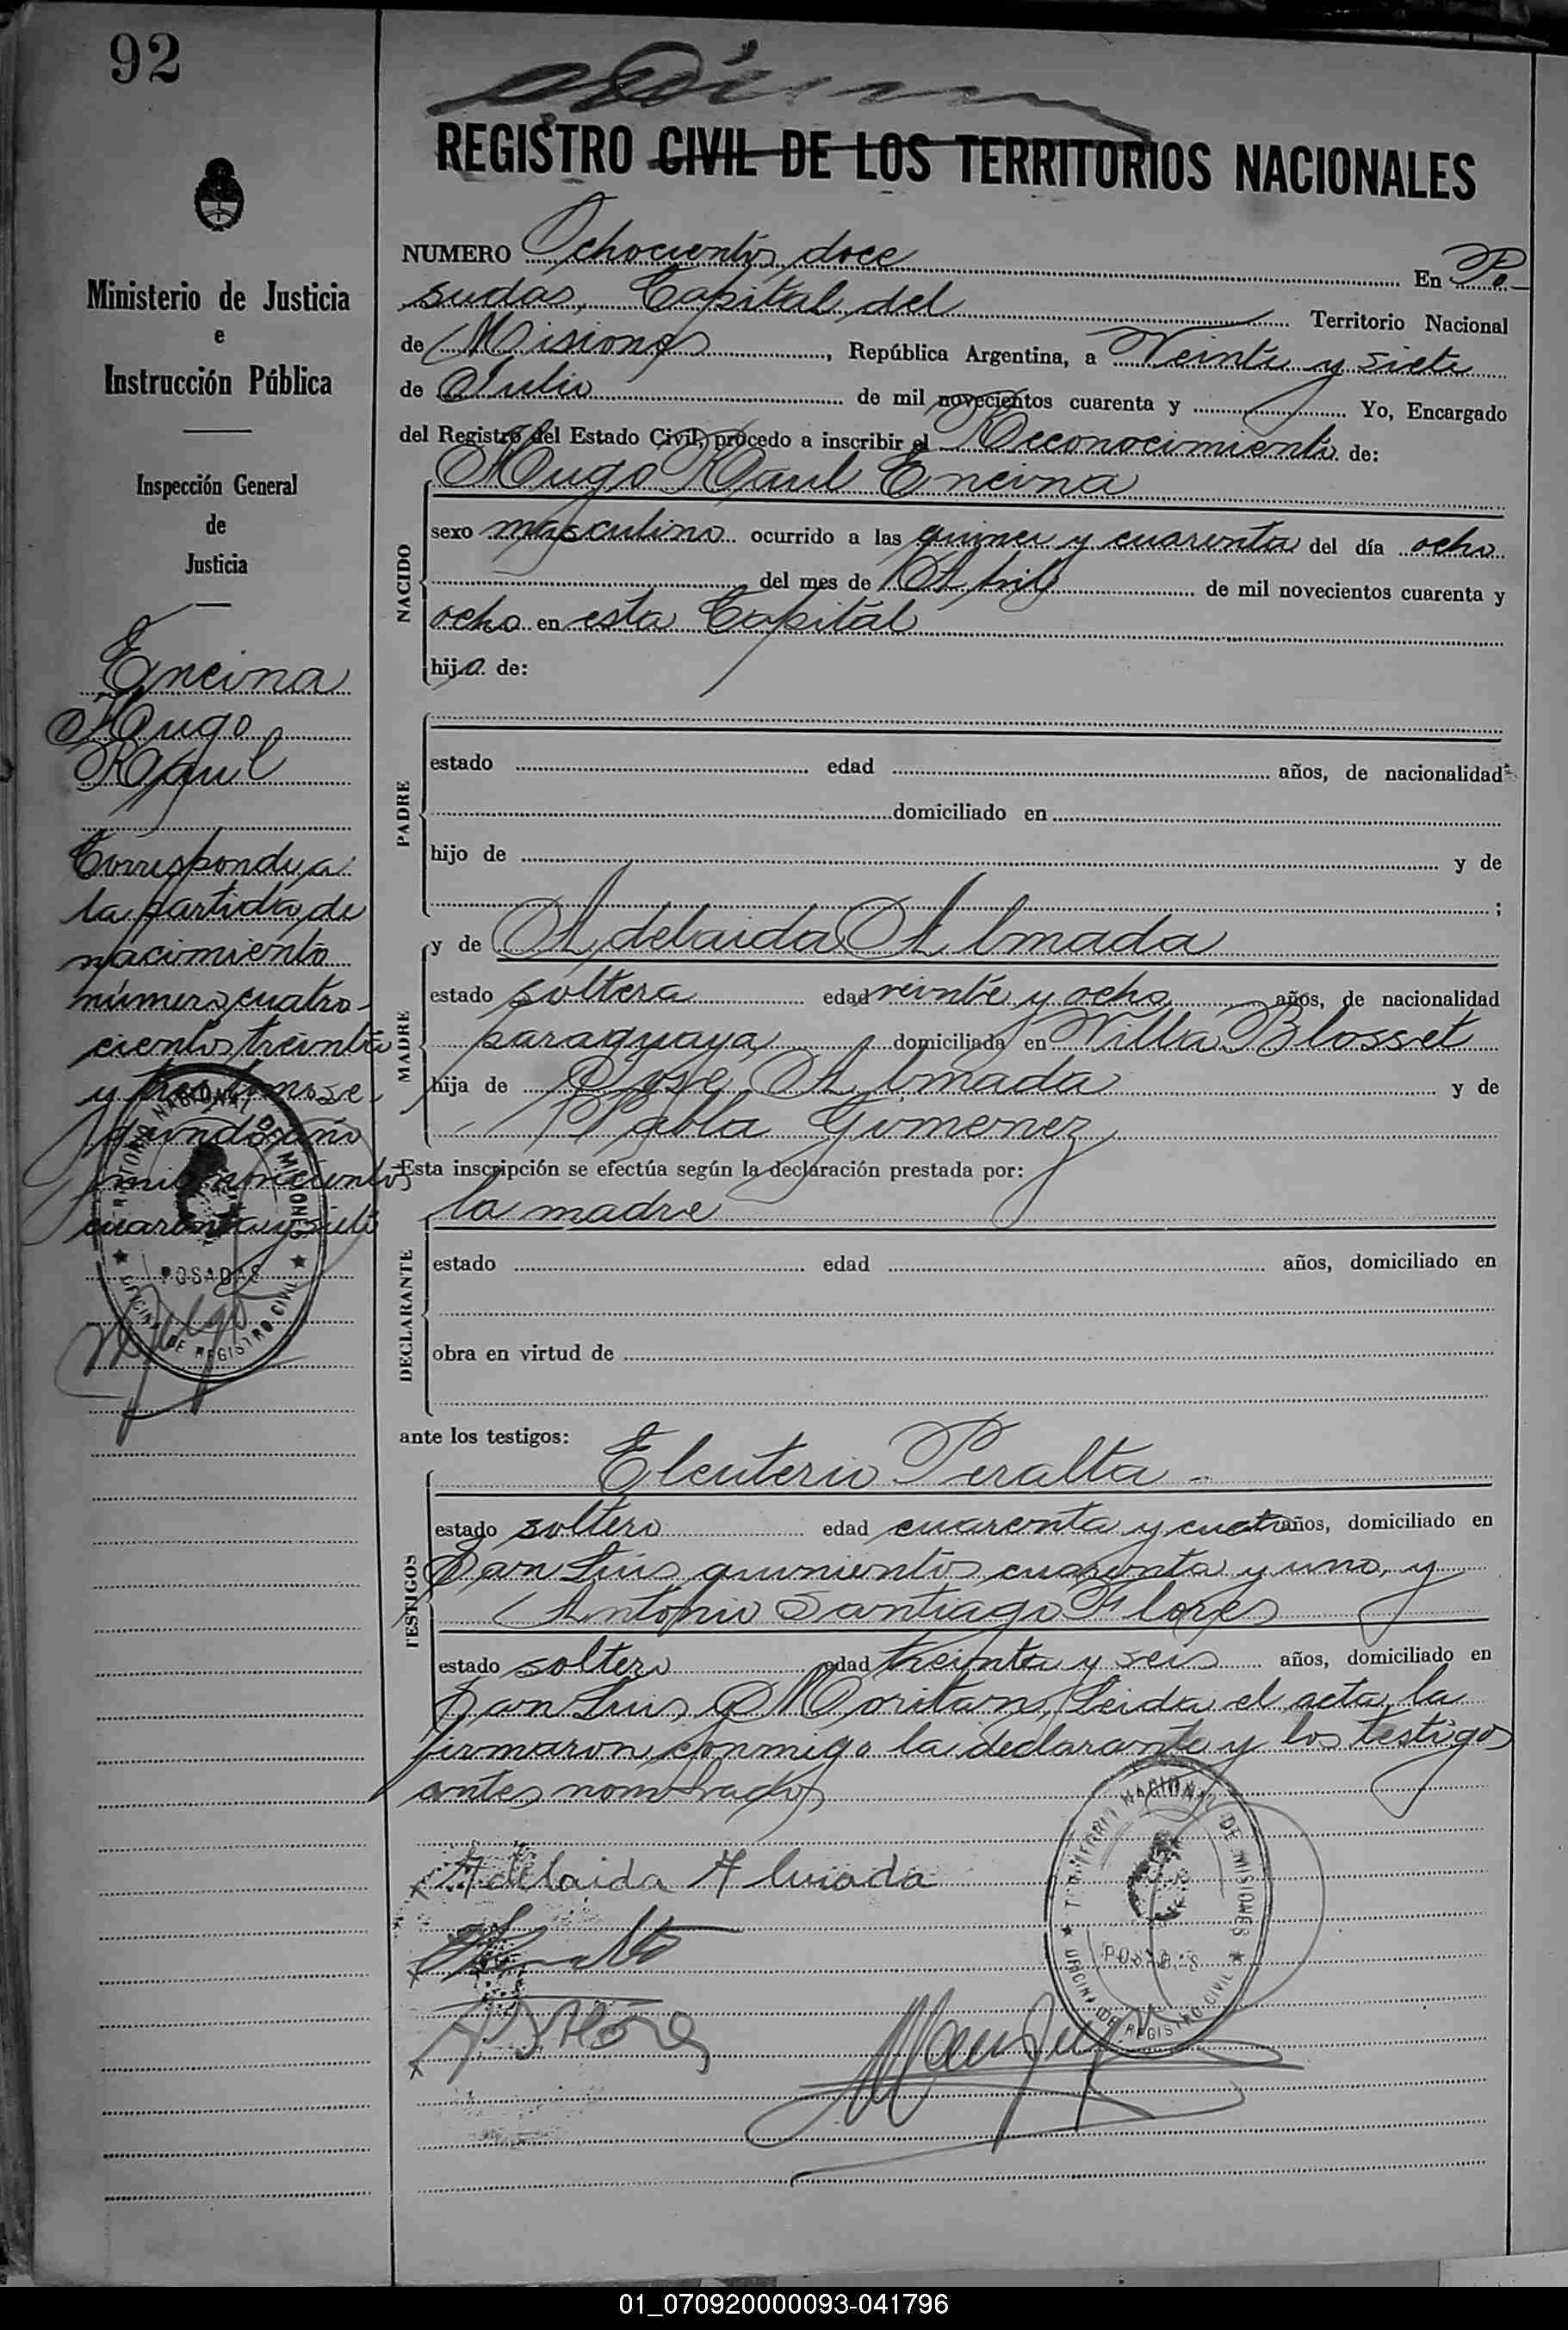 92
REGISTRO CIVIL DE LOS TERRITORIOS NACIONALES
Ministerio de Justicia
e
Instrucción Pública
Inspección General
de
Justicia
Encina
Hugo
Raul
Corresponde a
la partida de
nacimiento
número cuatro-
cientos treinta
y tres tomo se-
gundo año
mil novecientos
cuarenta y siete
TERRITORIO NACIONAL DE MISIONES
POSADAS
OFICINA DE REGISTRO CIVIL
NUMERO Ochocientos doce En Po-
sadas, Capital del Territorio Nacional
de Misiones, República Argentina, a Veinte y siete
de Julio de mil novecientos cuarenta y Yo, Encargado
del Registro del Estado Civil, procedo a inscribir el Reconocimiento de:
NACIDO
Hugo Raul Encina
sexo masculino ocurrido a las quince y cuarenta del día ocho
del mes de Abril de mil novecientos cuarenta y
ocho en esta Capital
hijo de:
PADRE
estado edad años, de nacionalidad
domiciliado en
hijo de y de
;
MADRE
y de Adelaida Almada
estado soltera edad veinte y ocho años, de nacionalidad
paraguaya domiciliada en Villa Blosset
hija de José Almada y de
Pabla Gimenez
Esta inscripción se efectúa según la declaración prestada por:
DECLARANTE
la madre
estado edad años, domiciliado en
obra en virtud de
ante los testigos:
TESTIGOS
Eleuterio Peralta -
estado soltero edad cuarenta y cuatro años, domiciliado en
San Luis quinientos cuarenta y uno, y
Antonio Santiago Flores
estado soltero edad treinta y seis años, domiciliado en
San Luis y Moritan, Leida el acta, la
firmaron conmigo la declarante y los testigos
antes nombrados
Adelaida Almada
Flores
TERRITORIO NACIONAL DE MISIONES
POSADAS
OFICINA DE REGISTRO CIVIL
01_070920000093-041796